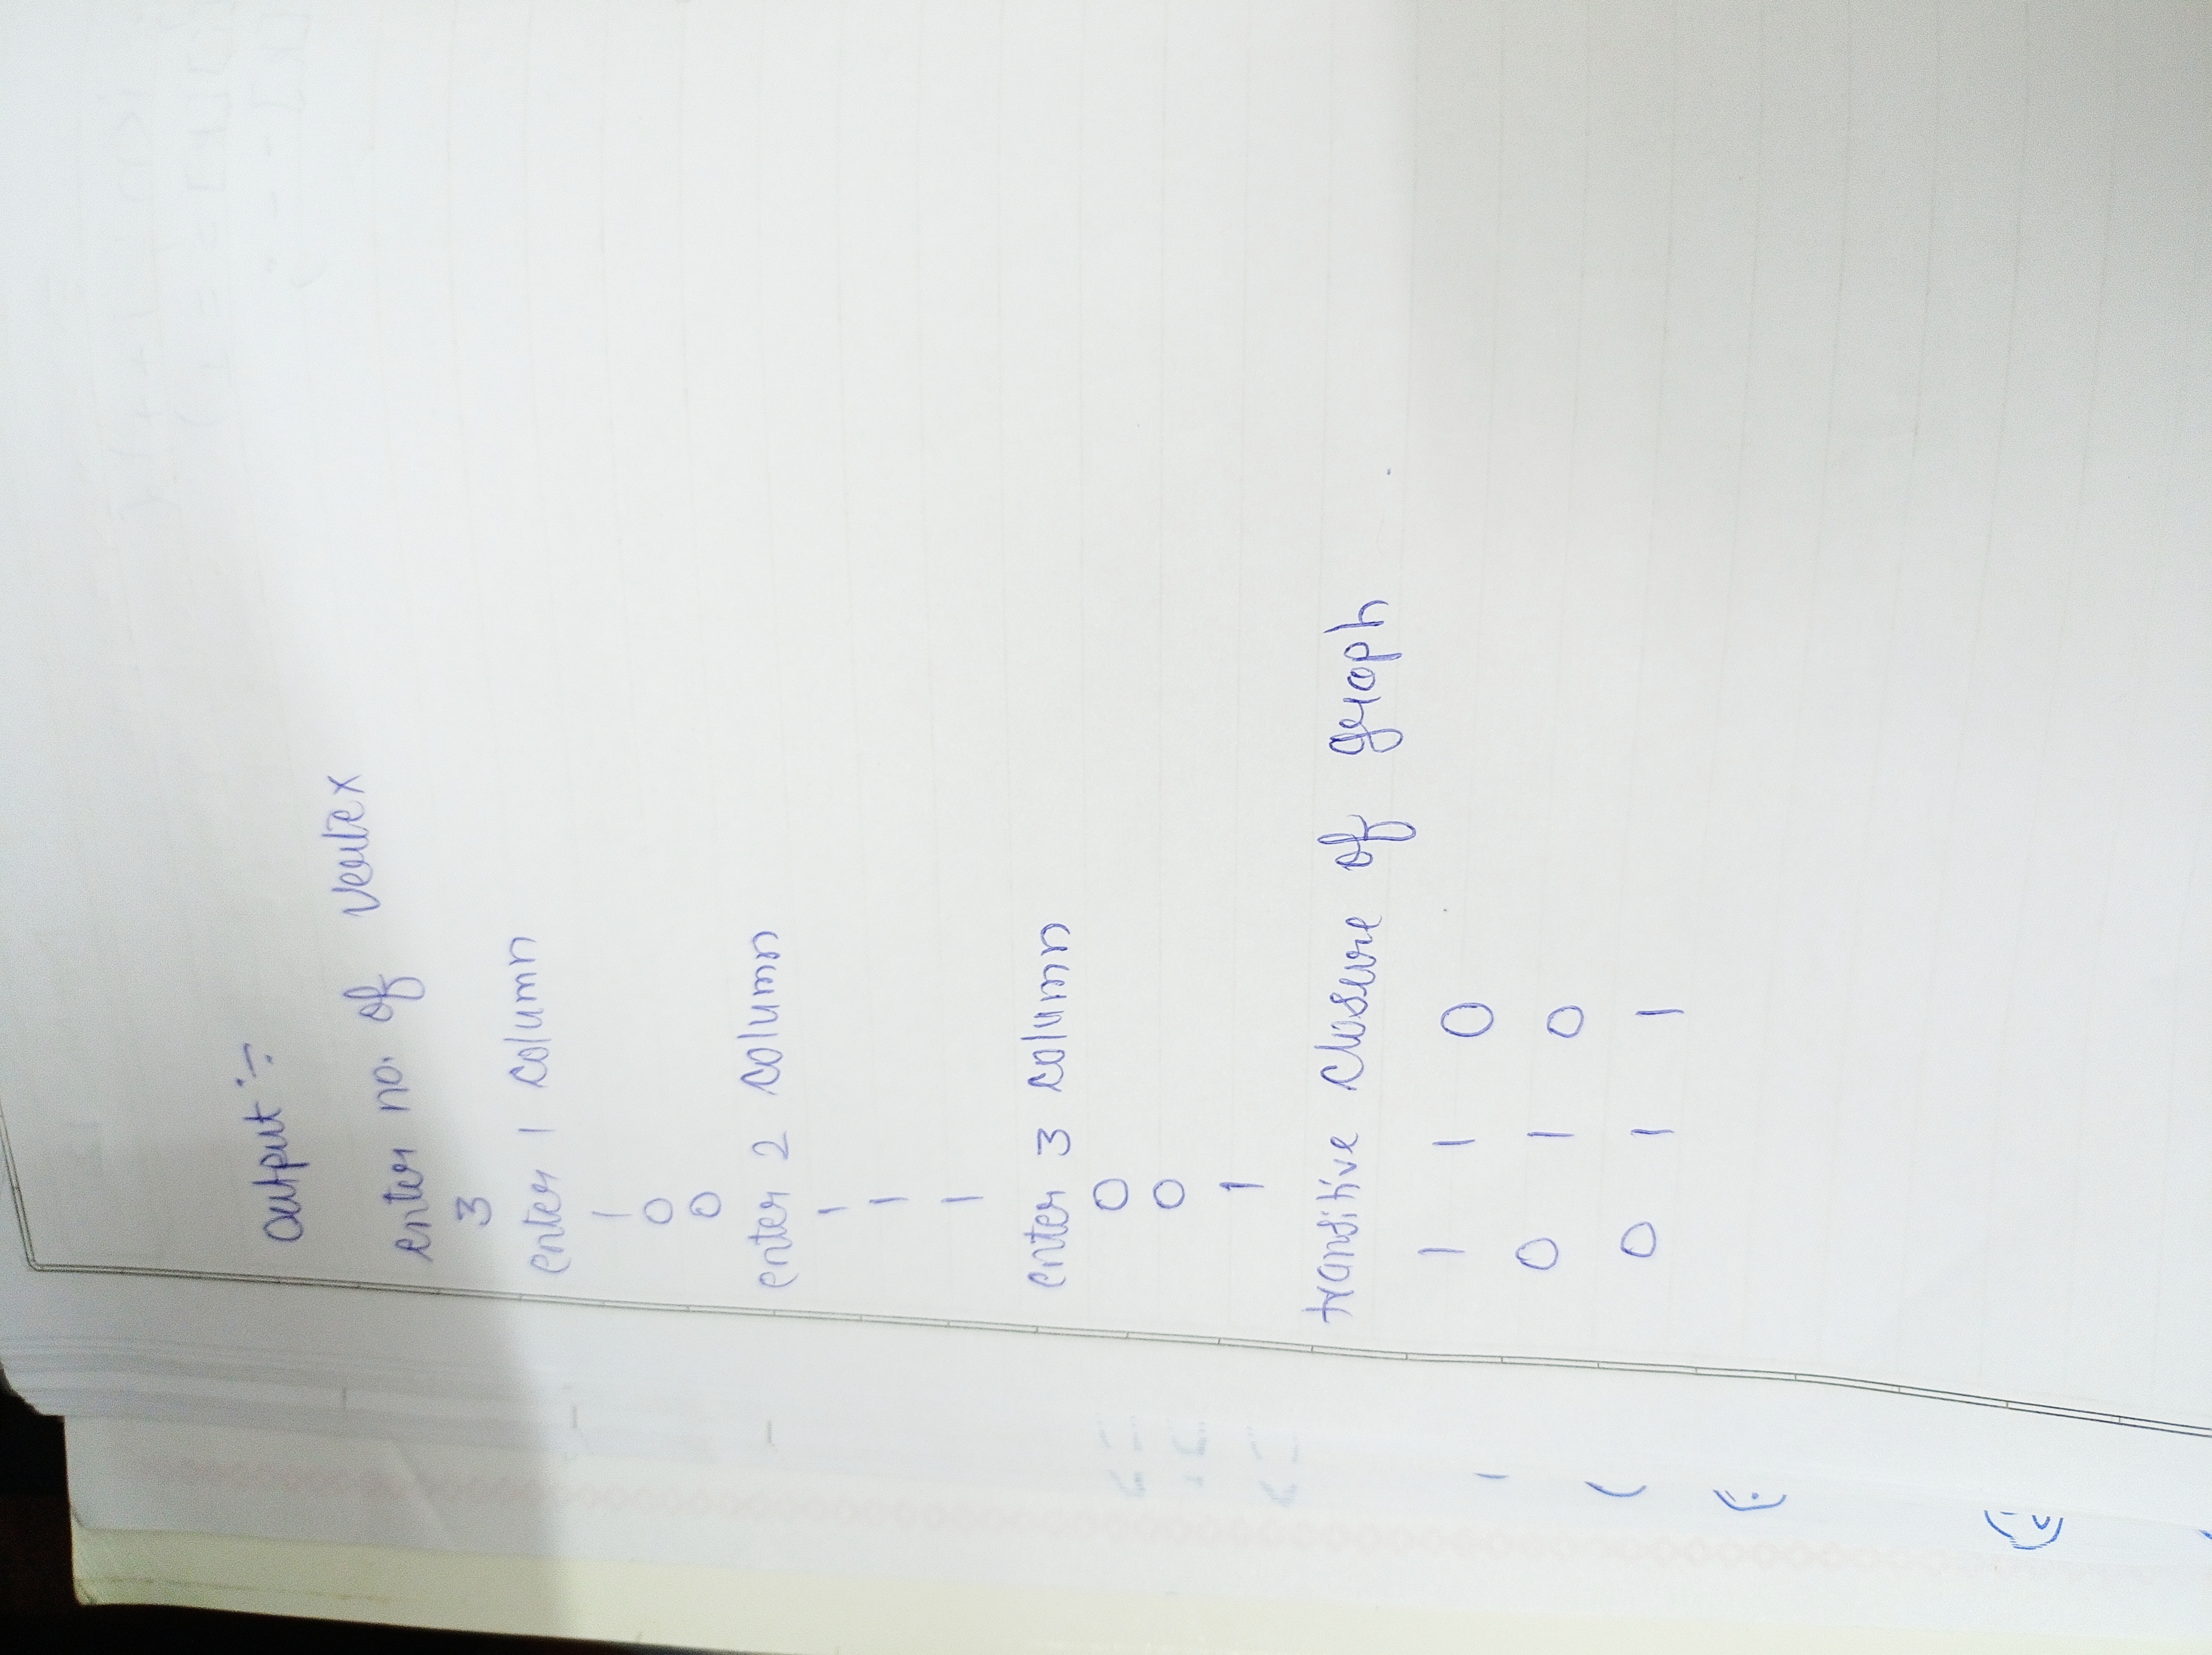 output :-
enter no. of vertex
3
enter 1 column
1
0
0
enter 2 column
1
1
1
enter 3 column
0
0
1
transitive closure of graph
1 1 0
0 1 0
0 1 1